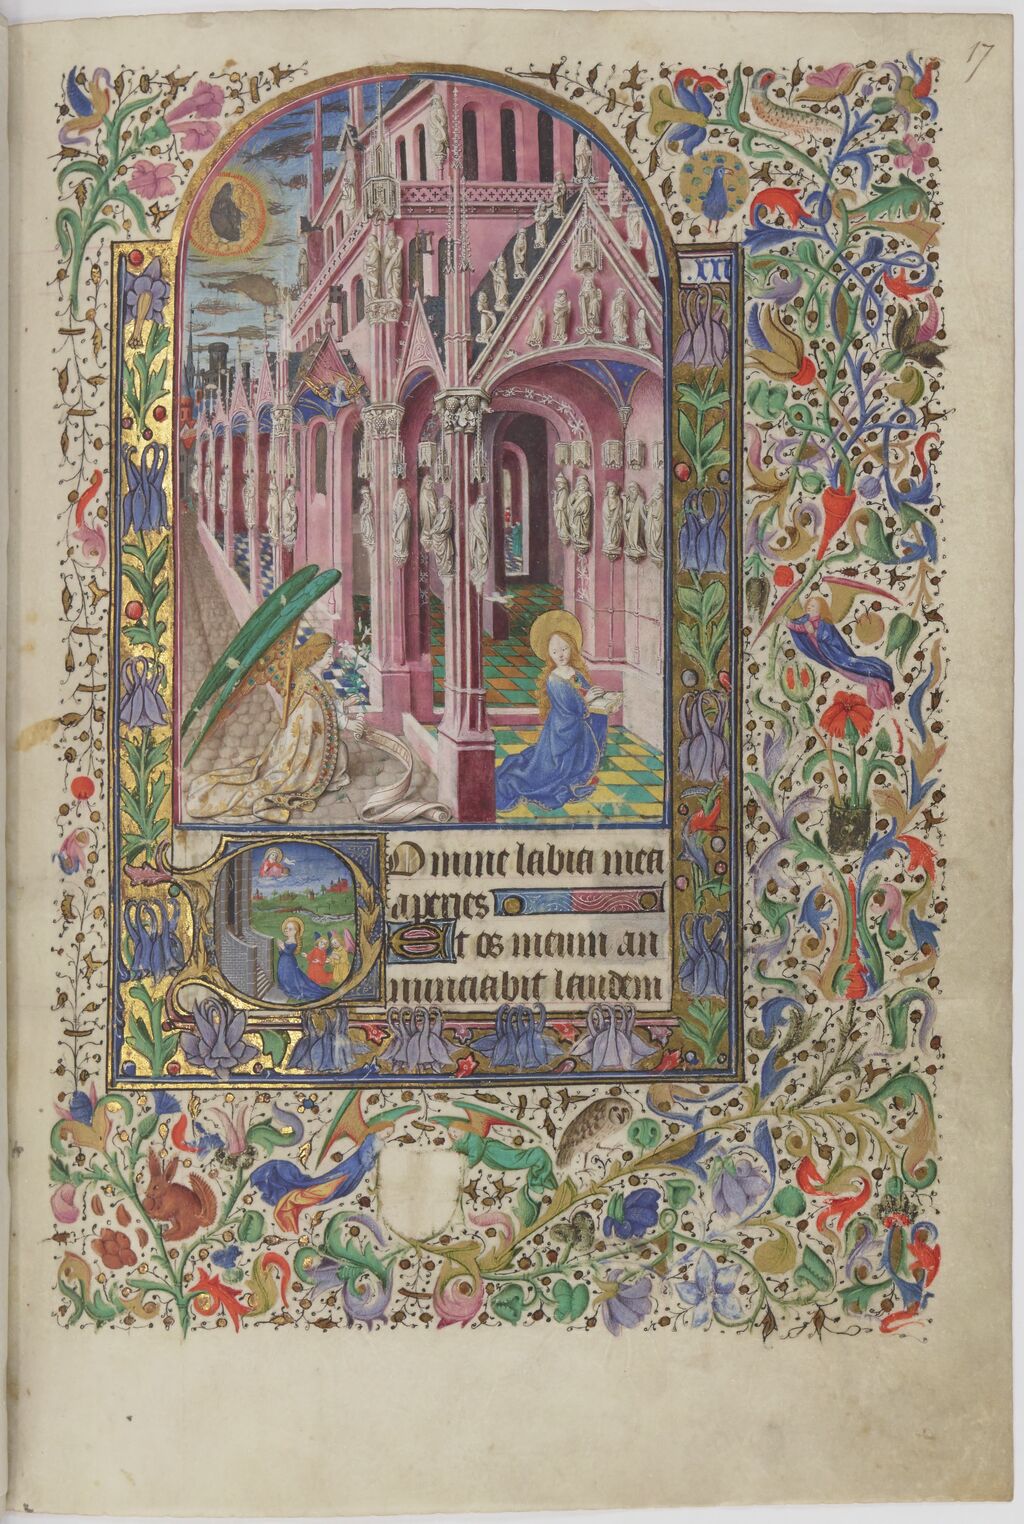 17
Domine labia mea
aperies
Et os meum an
nunciabit laudem